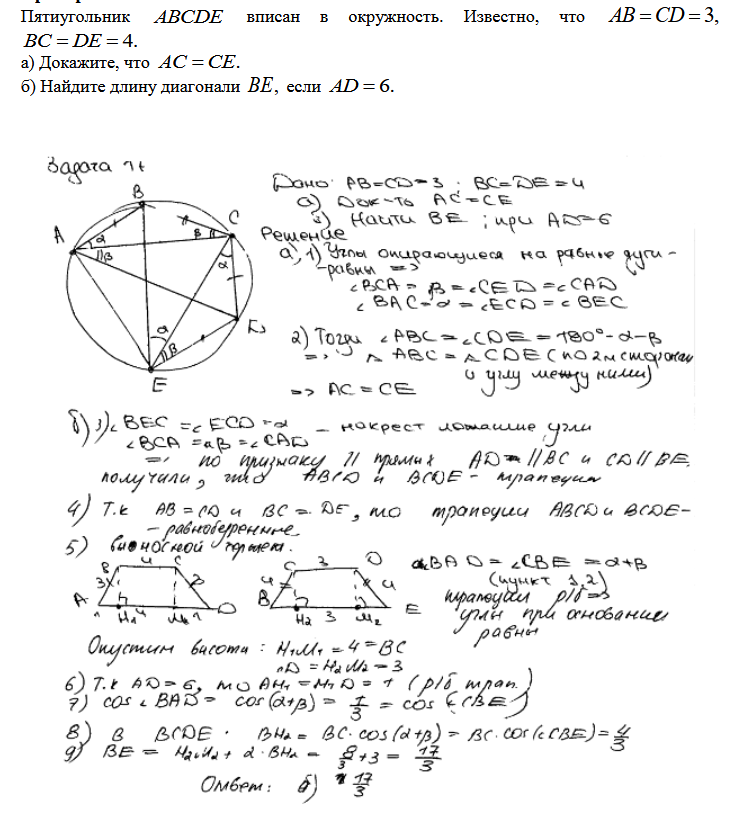 Пятиугольник ABCDE вписан в окружность. Известно, что AB = CD = 3,
BC = DE = 4.
а) Докажите, что AC = CE.
б) Найдите длину диагонали BE, если AD = 6.
Задача
Дано: AB=CD=3 ; BC=DE=4
а) Док-ть AC=CE
Найти BE ; при AD=6
Решение
а) 1) Углы опирающиеся на равные дуги -
-равны =>
∠BCA = β = ∠CED = ∠CAD
∠BAC = α = ∠ECD = ∠BEC
2) Тогда ∠ABC = ∠CDE = 180° - α - β
=> △ABC = △CDE (по 2м сторонам
и углу между ними)
=> AC = CE
A
B
C
D
E
α
β
β
α
α
β
б) 3) ∠BEC = ∠ECD = α - накрест лежащие углы
∠BCA = β = ∠CAD
=> по признаку || прямых AD || BC и CD || BE,
получили, что ABCD и BCDE - трапеции
4) Т.к AB = CD и BC = DE, то трапеции ABCD и BCDE -
- равнобедренные
5) выносной чертеж.
B 4 C
3
A H1 4 M1 1 D
C 3 D
4 4
B H2 3 M2 E
∠BAD = ∠CBE = α+β
(пункт 1,2)
трапеции р/б =>
углы при основании
равны
Опустим высоты : H1M1 = 4 = BC
CD = H2M2 = 3
6) Т.к AD = 6, то AH1 = M1D = 1 (р/б трап.)
7) cos ∠BAD = cos(α+β) = 1/3 = cos(∠CBE)
8) В BCDE · BH2 = BC · cos(α+β) = BC · cos(∠CBE) = 4/3
9) BE = H2M2 + 2 · BH2 = 8/3 + 3 = 17/3
Ответ: б) 17/3